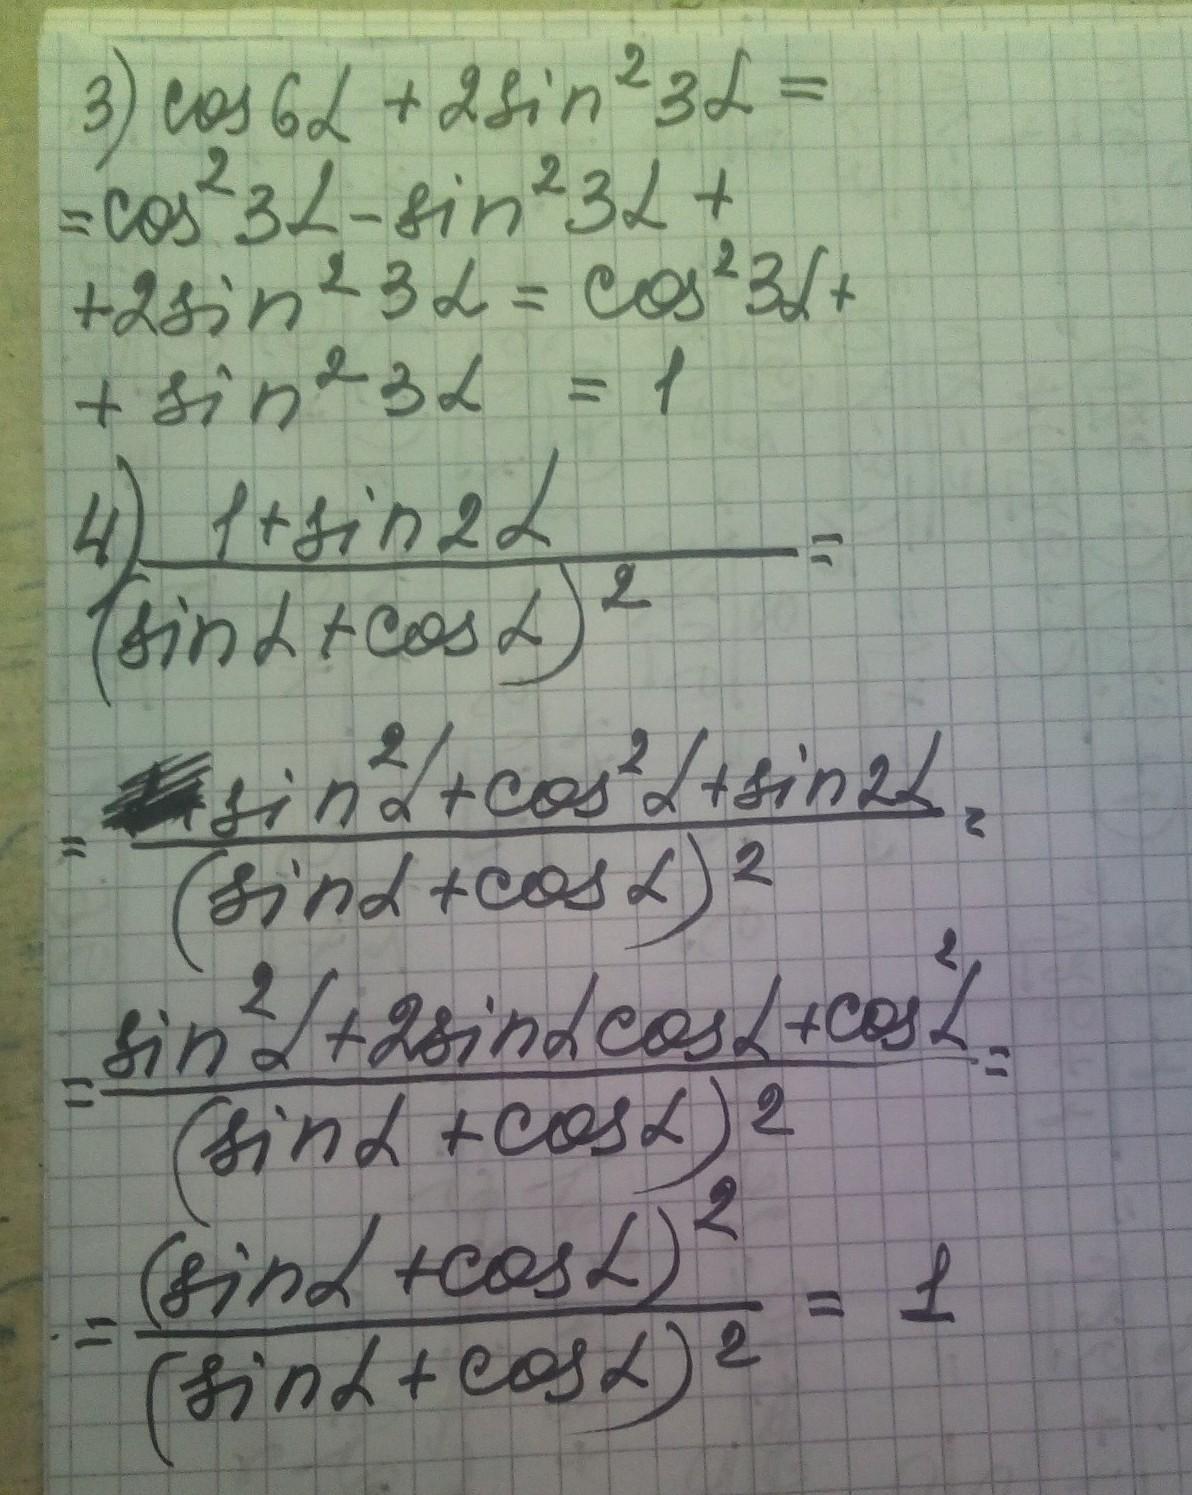 3) cos6α + 2sin²3α =
= cos²3α - sin²3α +
+ 2sin²3α = cos²3α +
+ sin²3α = 1
4) 1 + sin2α =
(sinα + cosα)²
sin²α + cos²α + sin2α
= =
(sinα + cosα)²
sin²α + 2sinα cosα + cos²α
= =
(sinα + cosα)²
(sinα + cosα)²
= = 1
(sinα + cosα)²